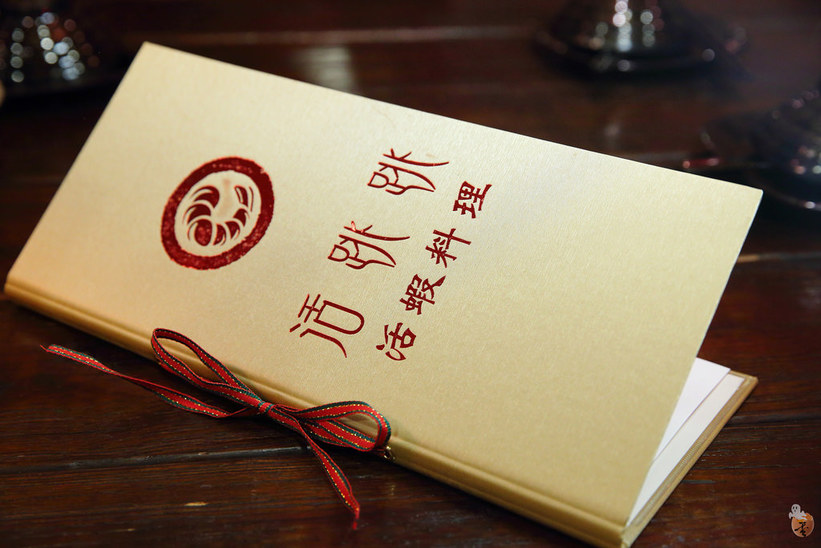 活跳跳
活蝦料理